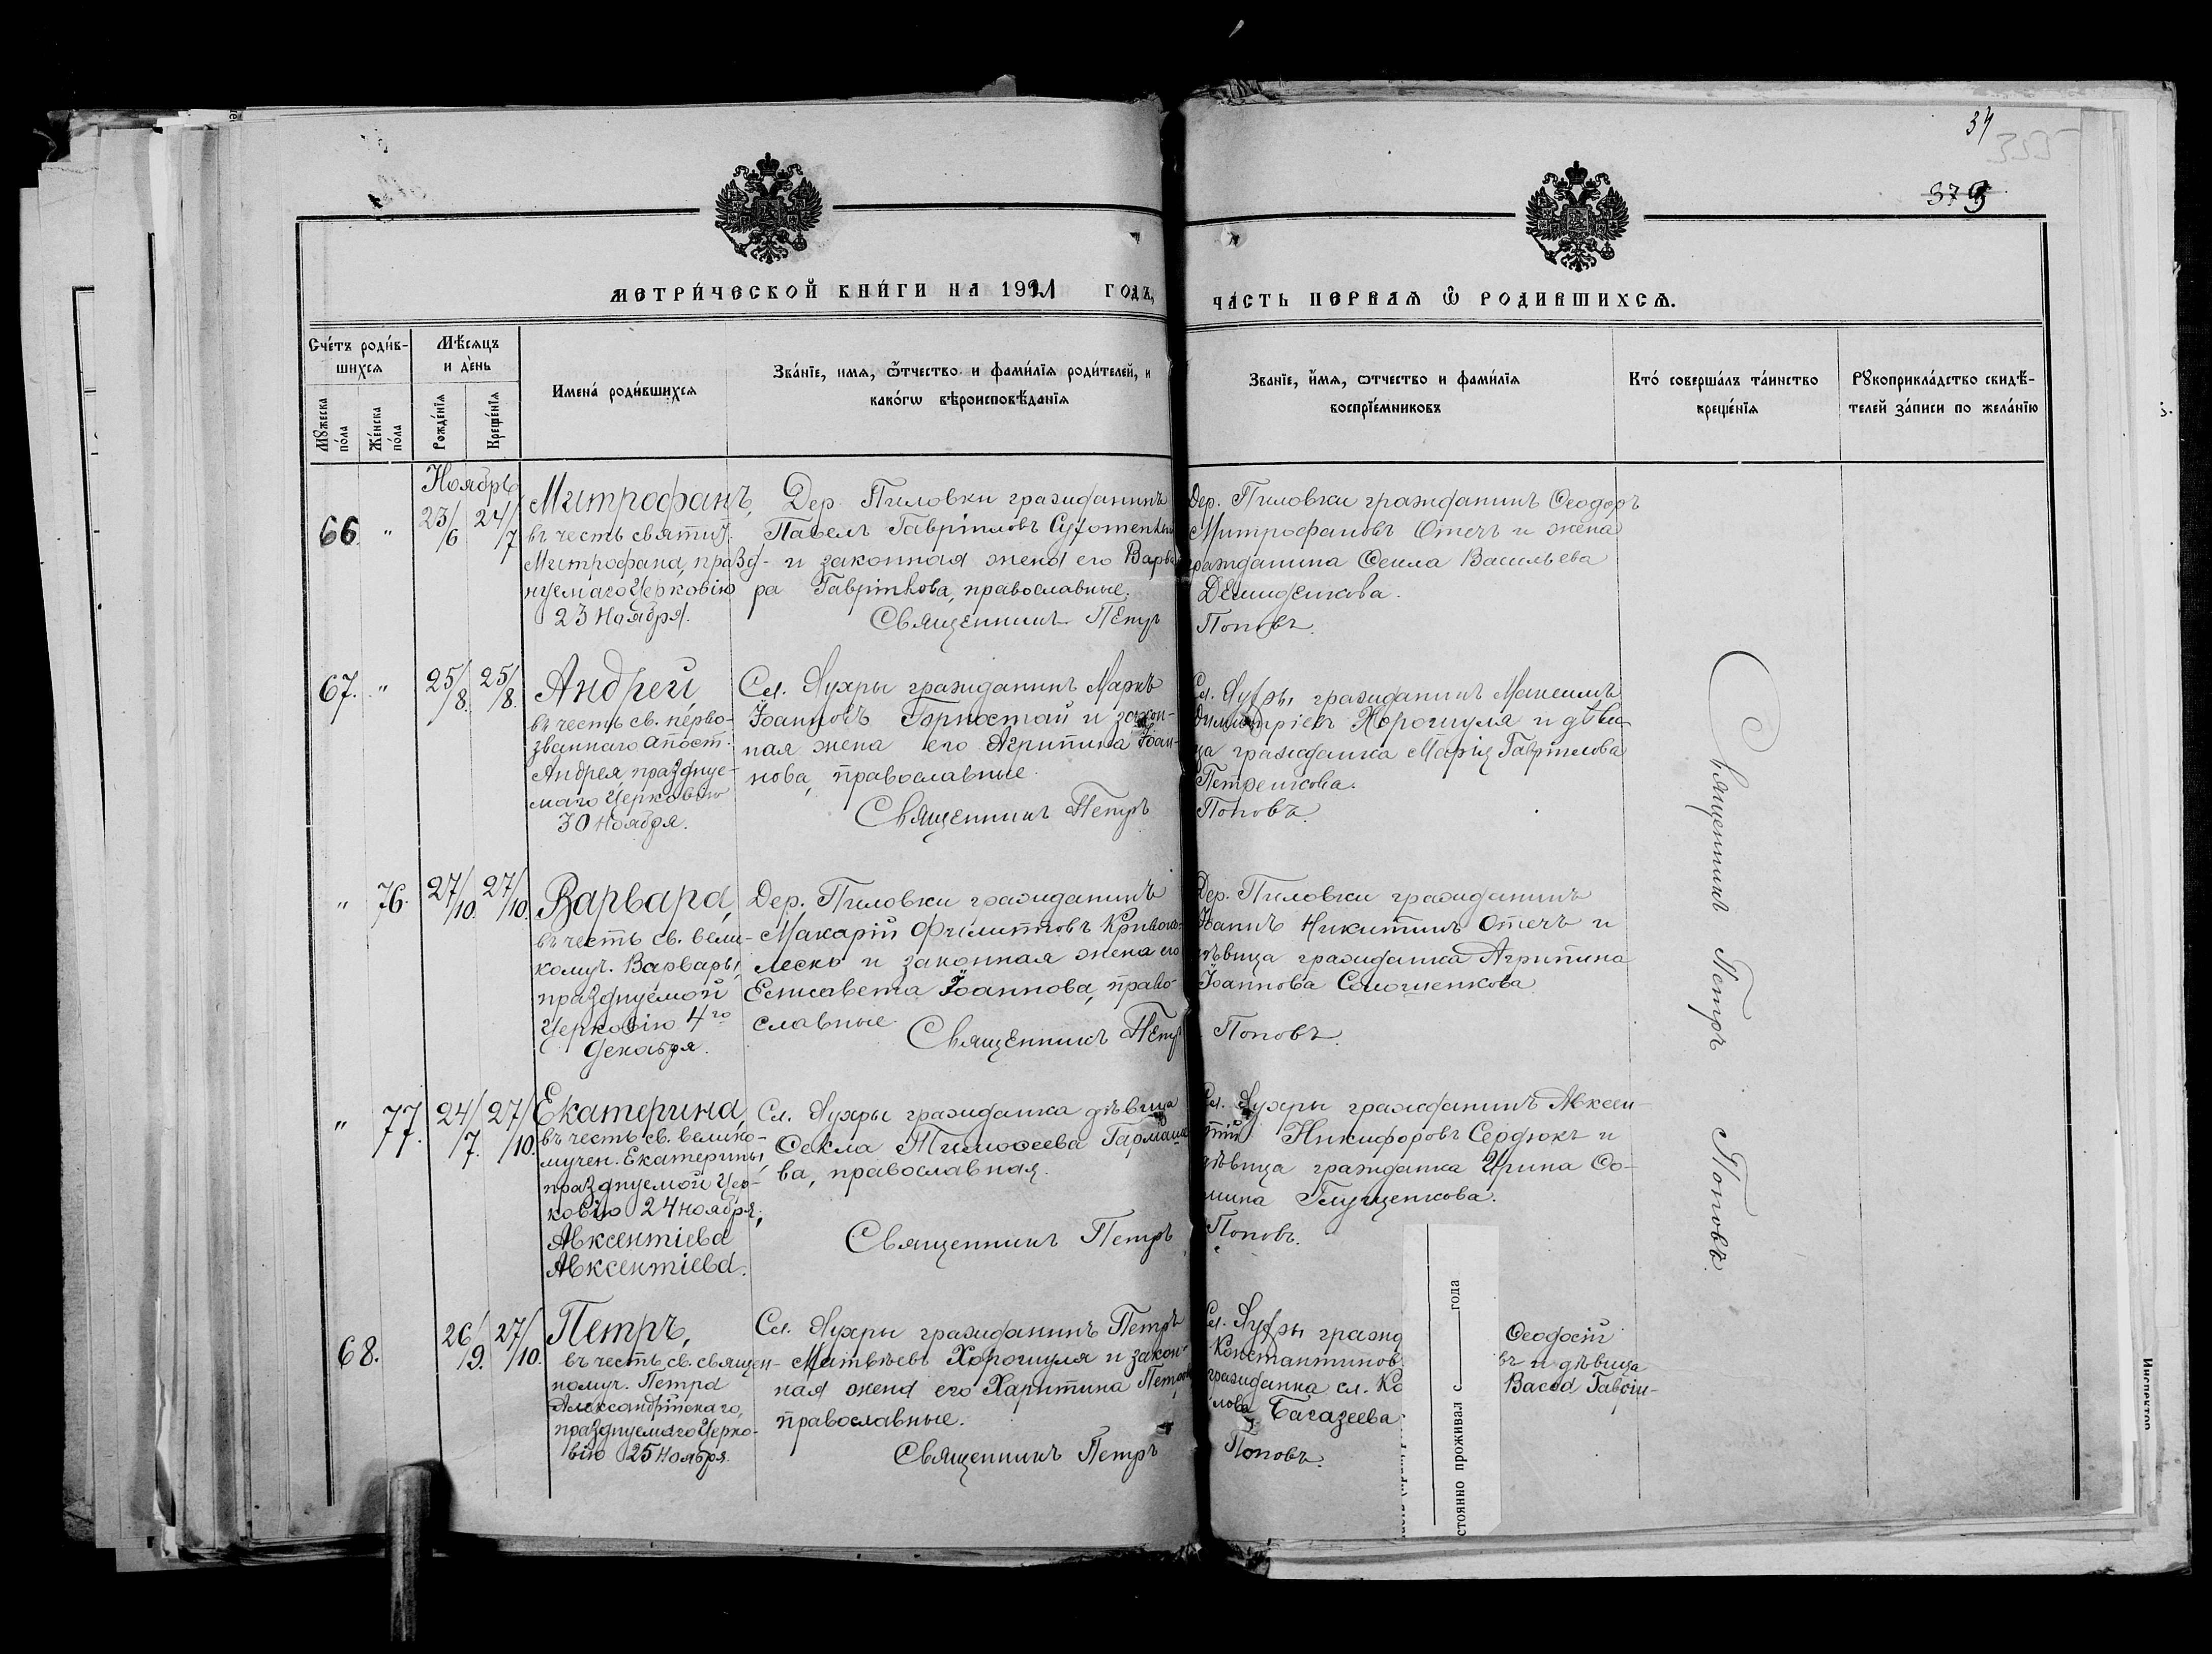 34
335
379
МЕТРИ́ЧЕСКОЙ КНИ́ГИ НА 1921 ГОДЪ,
ЧА́СТЬ ПЕРВАЯ Ѿ РОДИВШИХСѦ.
Сче́тъ роди́в-
шихсѧ
Мꙋжеска по́ла
Же́нска по́ла
Мѣ́сяцъ
и де́нь
Рожде́нїѧ
Креще́нїѧ
Имена́ роди́вшихсѧ
Зва́нїе, имѧ, ѻ҆́тчество и фами́лїѧ роди́телей, и
како́гѡ вѣроисповѣ́данїѧ
Званїе, и́мѧ, ѻтчество и фами́лїѧ
воспрїе́мниковъ
Кто́ соверша́лъ та́инство
креще́нїѧ
Рꙋкоприкла́дство свидѣ́-
телей за́писи по жела́нїю
Ноябрь
66. "
23/6 24/7
Митрофанъ,
въ честь святит.
Митрофана, празд-
нуемаго Церковію
23 Ноября.
Дер. Пиловки гражданинъ
Павелъ Гавріиловъ
и законная жена его Варва
ра Гавріилова, православные.
Священникъ Петръ
Дер. Пиловки гражданинъ Ѳеодоръ
Митрофановъ Отечъ и жена
гражданина Ѳекла Васильева
Демиденкова.
Поповъ.
67. "
25/8. 25/8.
Андрей
въ честь св. перво-
званнаго апост.
Андрея, празднуе-
маго Церковію
30 Ноября.
Сл. Яухры гражданинъ Маркъ
Іоанновъ Горностай и закон-
ная жена его Агрипина Іоан-
нова, православные.
Священникъ Петръ
Сл. Яухры гражданинъ Максимъ
Димитріевъ Хорошуля и дѣви
ца гражданка Марія Гавріилова
Петренкова.
Поповъ.
" 76.
27/10. 27/10.
Варвара,
въ честь св. вели-
комуч. Варвары,
празднуемой
Церковію 4го
Декабря.
Дер. Пиловки гражданинъ
Макарій Филипповъ Криво
леско и законная жена его
Елисавета Іоаннова, право-
славные.
Священникъ Петръ
Дер. Пиловки гражданинъ
Іоаннъ Никитинъ Отечъ и
дѣвица гражданка Агрипина
Іоаннова Сološенкова
Поповъ.
" 77.
24/7. 27/10.
Екатерина,
въ честь св. велико-
мучен. Екатерины,
празднуемой Цер-
ковію 24 ноября;
Авксентіева
Авксентіева.
Сл. Яухры гражданка дѣвица
Ѳекла Тимоѳеева Гармаше
ва, православная.
Священникъ Петръ
Сл. Яухры гражданинъ Авксен-
тій Никифоровъ Сердюкъ и
дѣвица гражданка Ирина Ѳо-
мина Глущенкова.
Поповъ.
68.
26/9. 27/10.
Петръ,
въ честь св. священ-
номуч. Петра
Александрійскаго,
празднуемаго Церко-
вію 25 Ноября.
Сл. Яухры гражданинъ Петръ
Матвѣевъ Хорошуля и закон-
ная жена его Харитина
православные.
Священникъ Петръ
Сл. Яухры гражд
Константинов
гражданка сл. Ко
лова Багазеева
Поповъ.
Ѳеодосій
въ и дѣвица
Васса Гавріи-
стоянно проживал с года
Священникъ Петръ Поповъ.
Инспектор